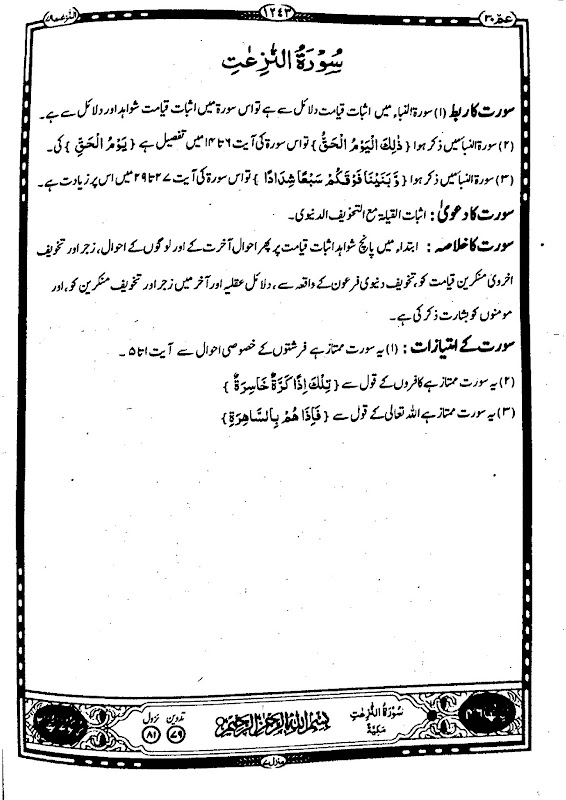 عمّ ٣٠
١٢٤٣
النّٰزعٰت ٧٩
سُوْرَةُ النّٰزِعٰتِ
سورت کا ربط (۱) سورۃ النباء میں اثبات قیامت دلائل سے ہے تو اس سورۃ میں اثبات قیامت شواہد اور دلائل سے ہے۔
(۲) سورۃ النبا میں ذکر ہوا { ذٰلِكَ الْيَوْمُ الْحَقُّ } تو اس سورۃ کی آیت ۶ تا ۱۴ میں تفصیل ہے { يَوْمُ الْحَقِّ } کی۔
(۳) سورۃ النبا میں ذکر ہوا { وَّ بَنَيْنَا فَوْقَكُمْ سَبْعًا شِدَادًا } تو اس سورۃ کی آیت ۲۷ تا ۲۹ میں اس پر زیادت ہے۔
سورت کا دعویٰ : اثبات القیٰمۃ مع التخویف الدنیوی۔
سورت کا خلاصہ : ابتداء میں پانچ شواہد اثبات قیامت پر پھر احوال آخرت کے اور لوگوں کے احوال، زجر اور تخویف
اخروی منکرین قیامت کو، تخویف دنیوی فرعون کے واقعہ سے، دلائل عقلیہ اور آخر میں زجر اور تخویف منکرین کو، اور
مومنوں کو بشارت ذکر کی ہے۔
سورت کے امتیازات : (۱) یہ سورت ممتاز ہے فرشتوں کے خصوصی احوال سے آیت ۱ تا ۵۔
(۲) یہ سورت ممتاز ہے کافروں کے قول سے { تِلْكَ اِذًا كَرَّةٌ خَاسِرَةٌ }
(۳) یہ سورت ممتاز ہے اللہ تعالی کے قول سے { فَاِذَا هُمْ بِالسَّاهِرَةِ }
سُوْرَةُ النّٰزِعٰتِ مَكِّيَّةٌ
بسم الله الرحمن الرحيم
تدوین ٧٩ نزول ٨١
منزل ٧